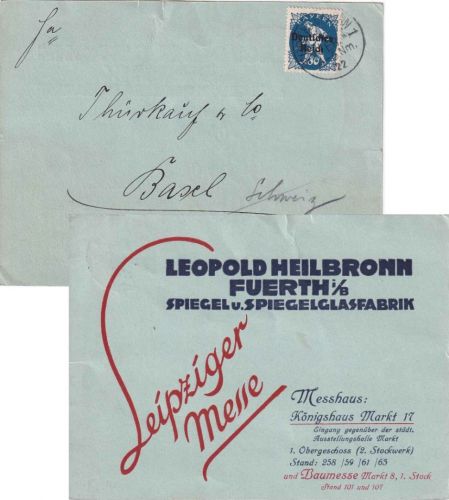 Fa
Thürkauf & Co
Basel Schweiz
BAYERN
Deutsches
Reich
1
Nm.
22
LEOPOLD HEILBRONN
FUERTH i/B
SPIEGEL u. SPIEGELGLASFABRIK
Leipziger
Messe
Messhaus:
Königshaus Markt 17
Eingang gegenüber der städt.
Ausstellungshalle Markt
1. Obergeschoss (2. Stockwerk)
Stand: 258/59/61/63
und Baumesse Markt 8, 1. Stock
Stand 101 und 107